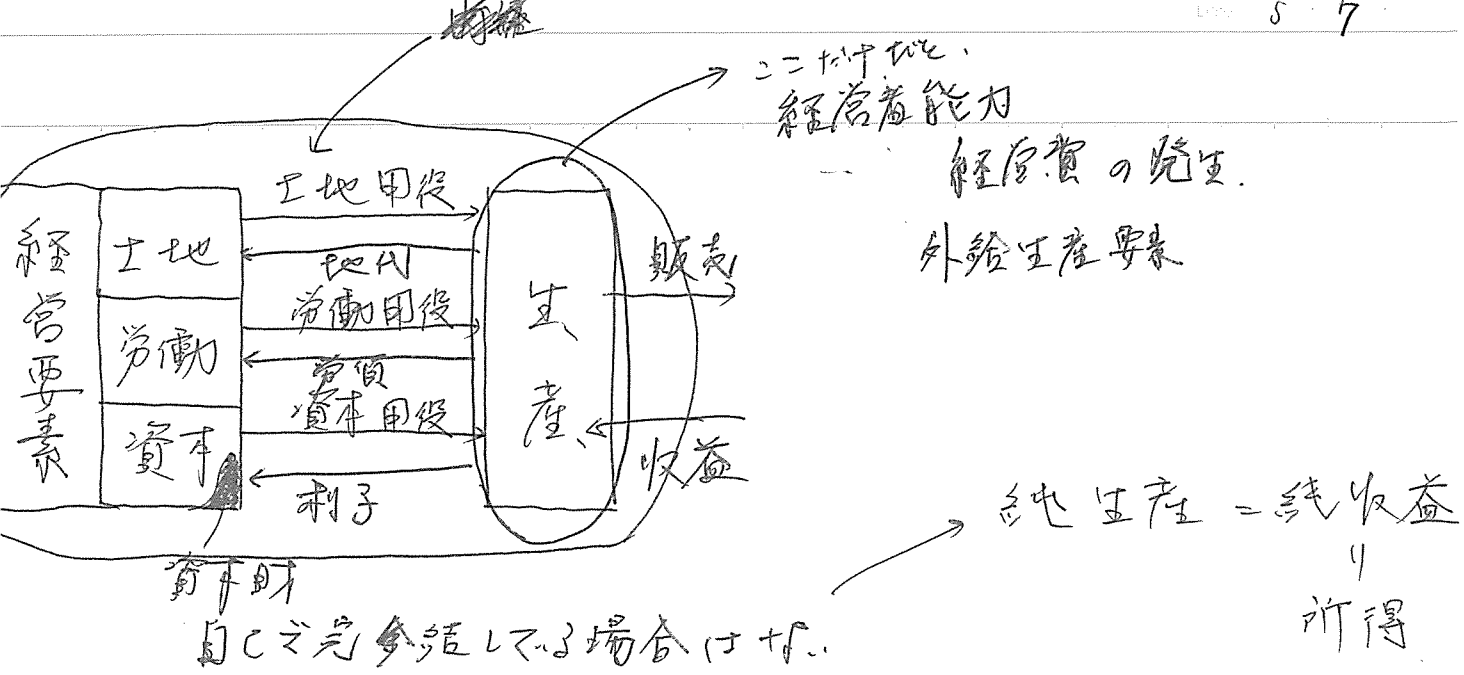 5 7
ここだけだと、
経営者能力
経営費の発生.
外給生産要素
経営要素
土地
労働
資本
土地用役
地代
労働用役
労賃
資本用役
利子
生産
販売
収益
資本財
自己で完結している場合はない
純生産 = 純収益
〃
所得